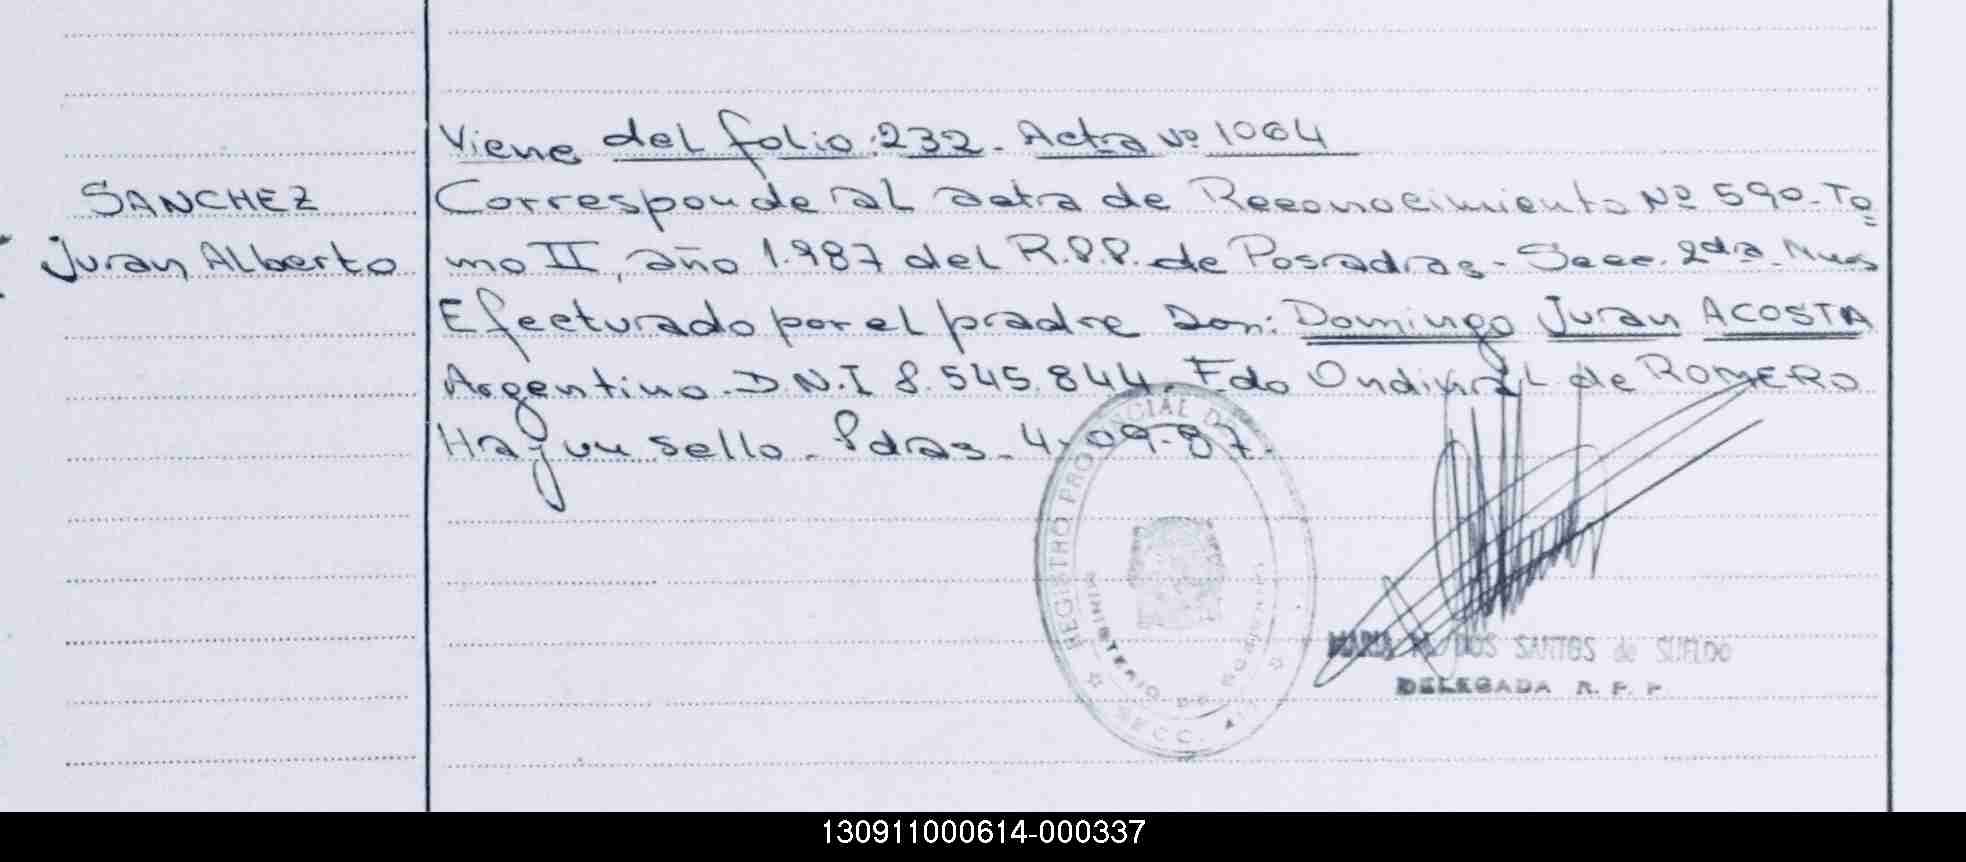 Viene del folio: 232. Acta Nº 1064
SANCHEZ
Juan Alberto
Corresponde al acta de Reconocimiento Nº 590-To
mo II, año 1.987 del R.P.P. de Posadas- Secc. 2da
Efectuado por el padre Don: Domingo Juan ACOSTA
Argentino. D.N.I 8.545.844. Fdo Ondina L de ROMERO
Hay un sello. Pdas. 4-09-87.
REGISTRO PROVINCIAL D
MINISTERIO DE GOBIERNO
SECC.
MARIA M. DOS SANTOS de SUELDO
DELEGADA R. P. P.
130911000614-000337